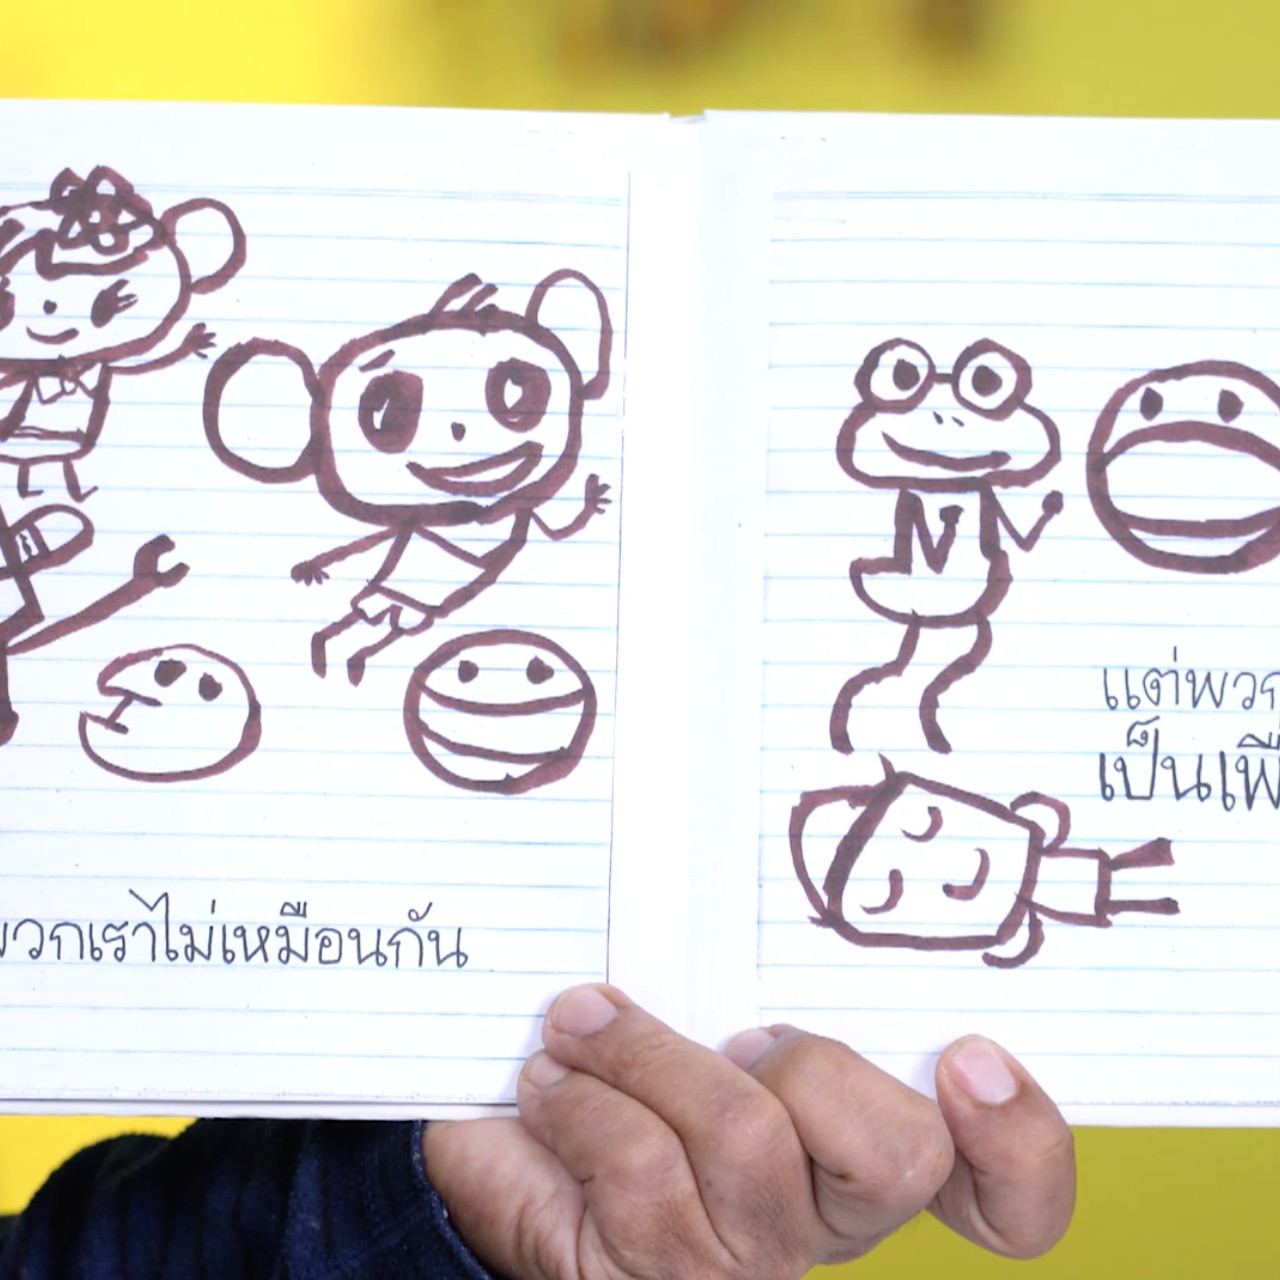 พวกเราไม่เหมือนกัน
แต่พวก
เป็นเพื่